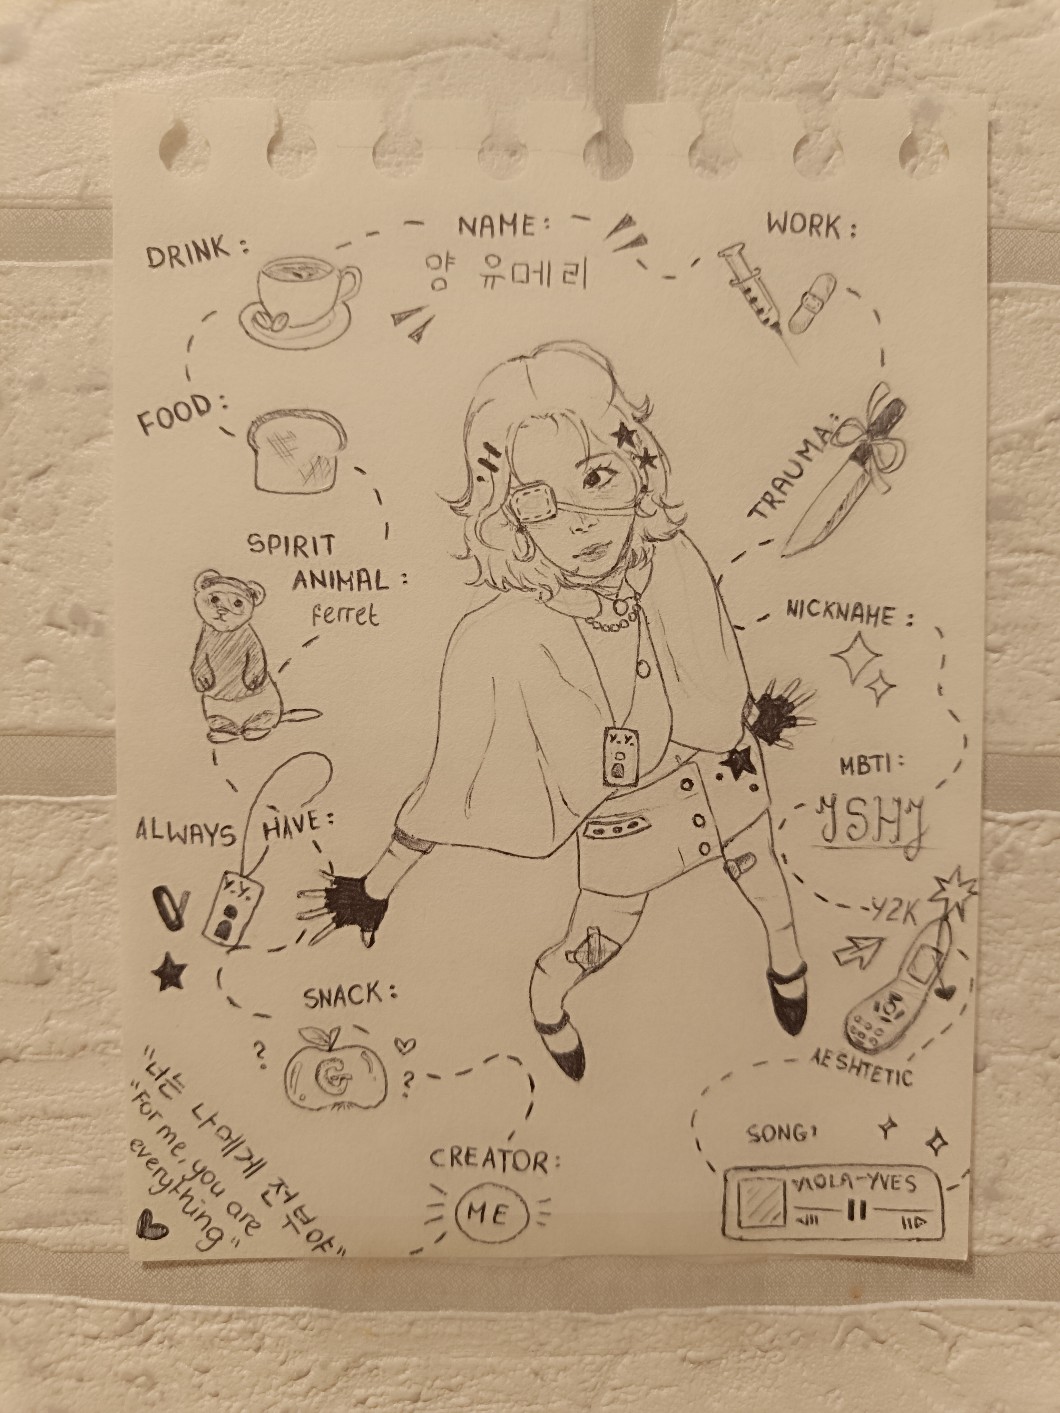 NAME:
양 유메리
DRINK:
WORK:
FOOD:
TRAUMA:
SPIRIT
ANIMAL:
ferret
NICKNAME:
MBTI:
ISHJ
ALWAYS HAVE:
Y2K
AESHTETIC
SNACK:
?
?
G
"너는 나에게 전부야"
"For me, you are
everything"
CREATOR:
ME
SONG:
VIOLA-YVES